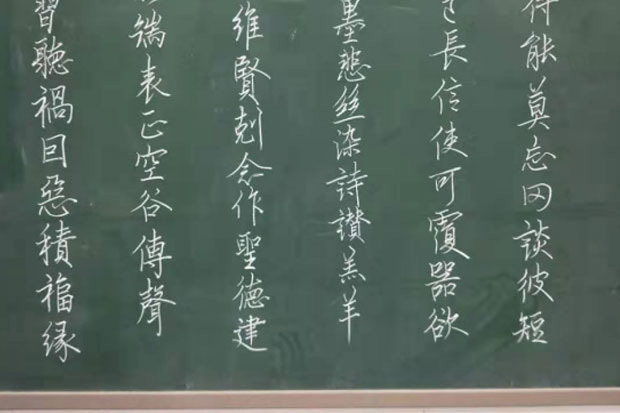 能莫忘罔談彼短
長信使可覆器欲
墨悲丝染詩讚羔羊
維賢剋念作聖德建
端表正空谷傳聲
習聽禍因惡積福緣